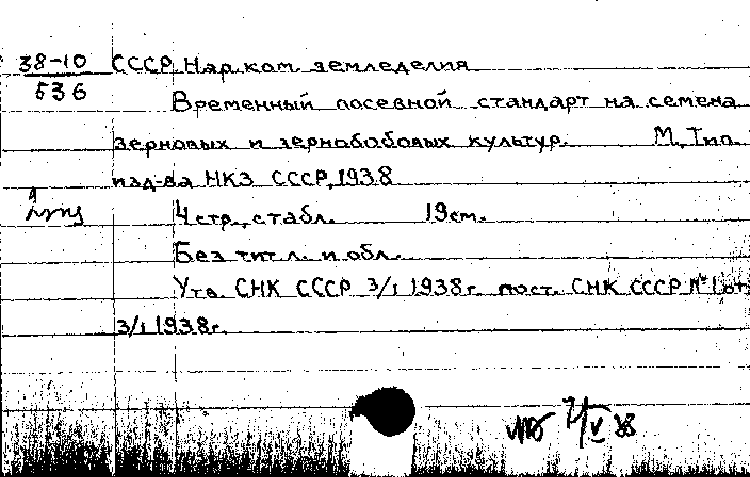 38-10 СССР. Нар. ком. земледелия
536
Временный посевной стандарт на семена
зерновых и зернобобовых культур. М., Тип.
изд-ва НКЗ СССР, 1938
4 стр., с табл. 19 см.
Без тит. л. и обл.
Утв. СНК СССР 3/I 1938 г. пост. СНК СССР № 1 от
3/I 1938 г.